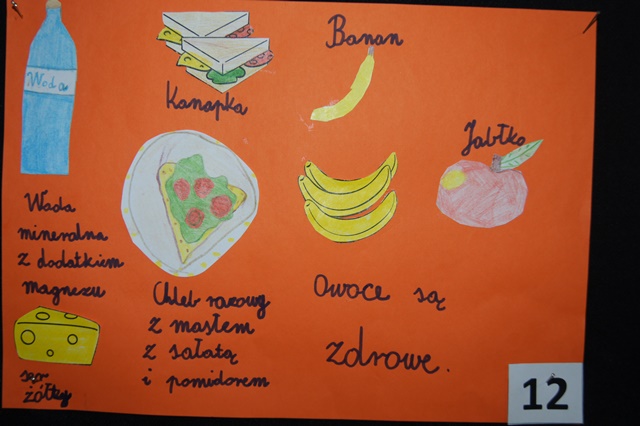 Woda
Kanapka
Banan
Jabłko
Woda
mineralna
z dodatkiem
magnezu
Chleb razowy
z masłem
z sałatą
i pomidorem
Owoce są
zdrowe.
ser
żółty
12